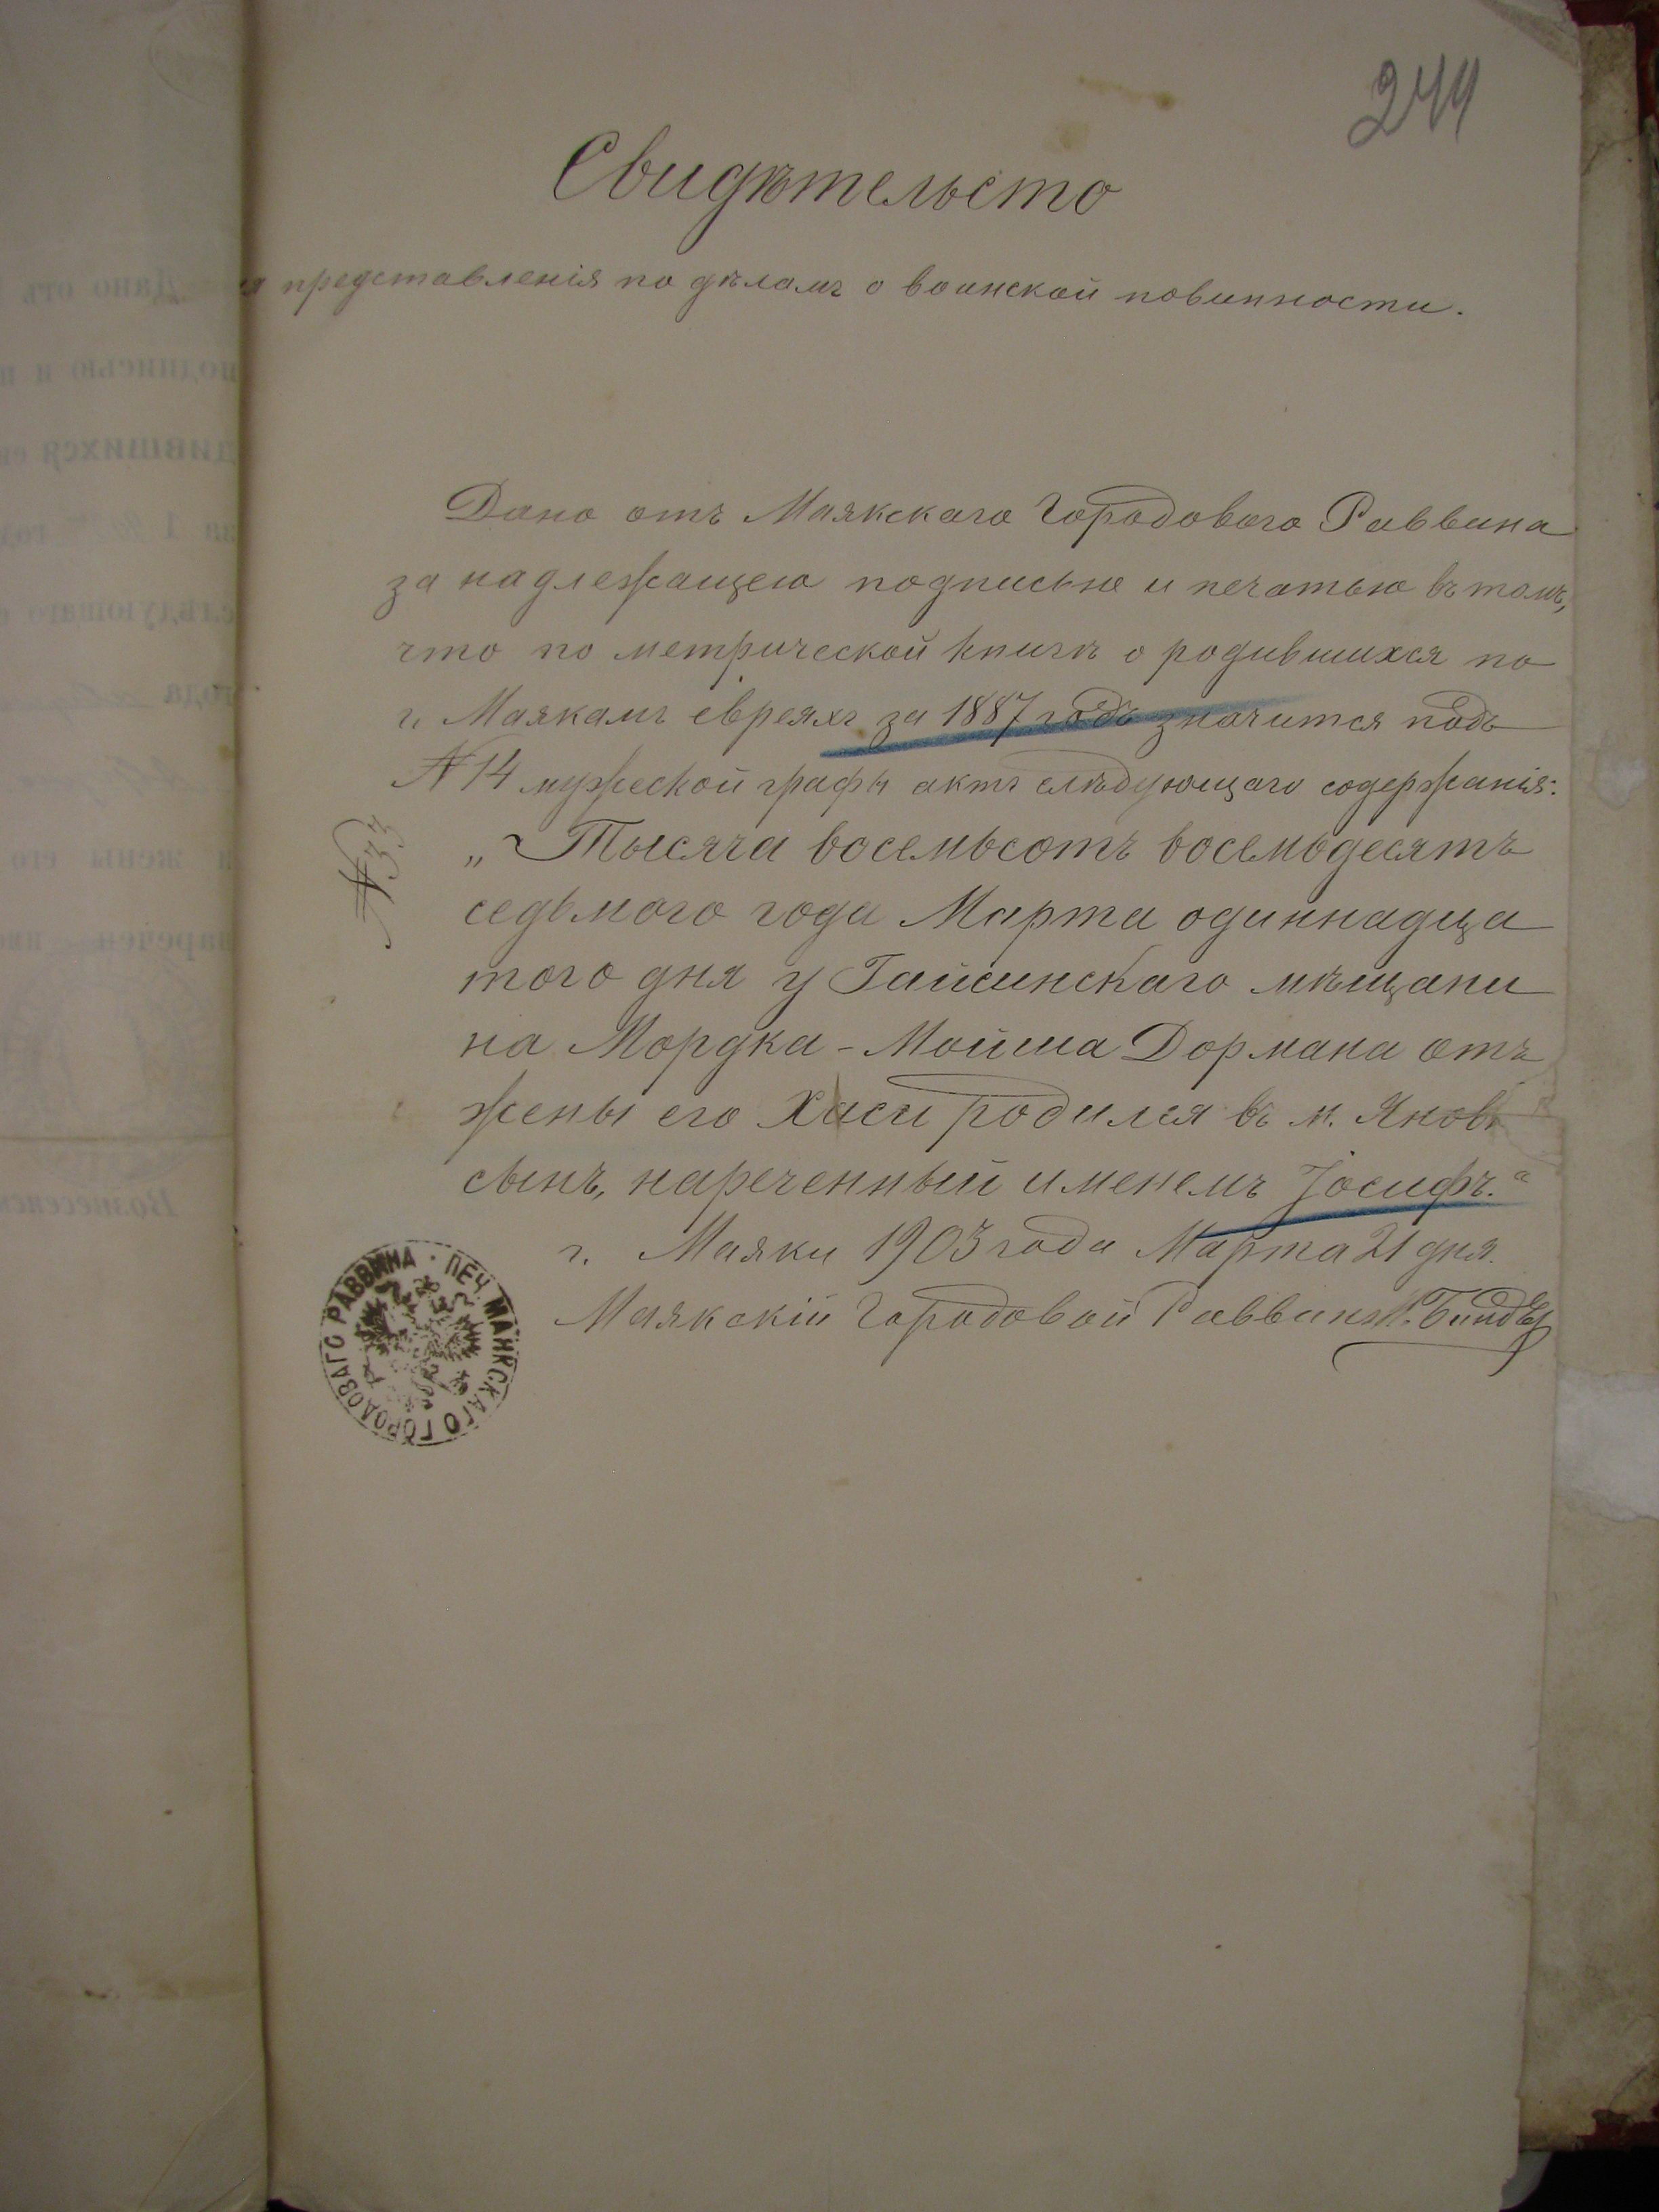 244
Свидѣтельсто
я представленія по дѣламъ о воинской повинности.
Дано отъ Маякскаго Городоваго Раввина
за надлежащею подписью и печатью въ томъ,
что по метрической книгѣ о родившихся по
г. Маякамъ евреяхъ за 1887 годъ значится подъ
№ 14 мужеской графы актъ слѣдующаго содержанія:
„Тысяча восемьсотъ восемьдесятъ
седьмого года Марта одиннадца
того дня у Гайсинскаго мѣщани
на Мордка-Мойша Дормана отъ
жены его Хаси родился въ м. Яновѣ
сынъ, нареченный именемъ Іосифъ.“
г. Маяки 1903 года Марта 21 дня.
Маякскій Городовой Раввинъ
№ 33
ПЕЧ. МАЯКСКАГО ГОРОДОВАГО РАВВИНА